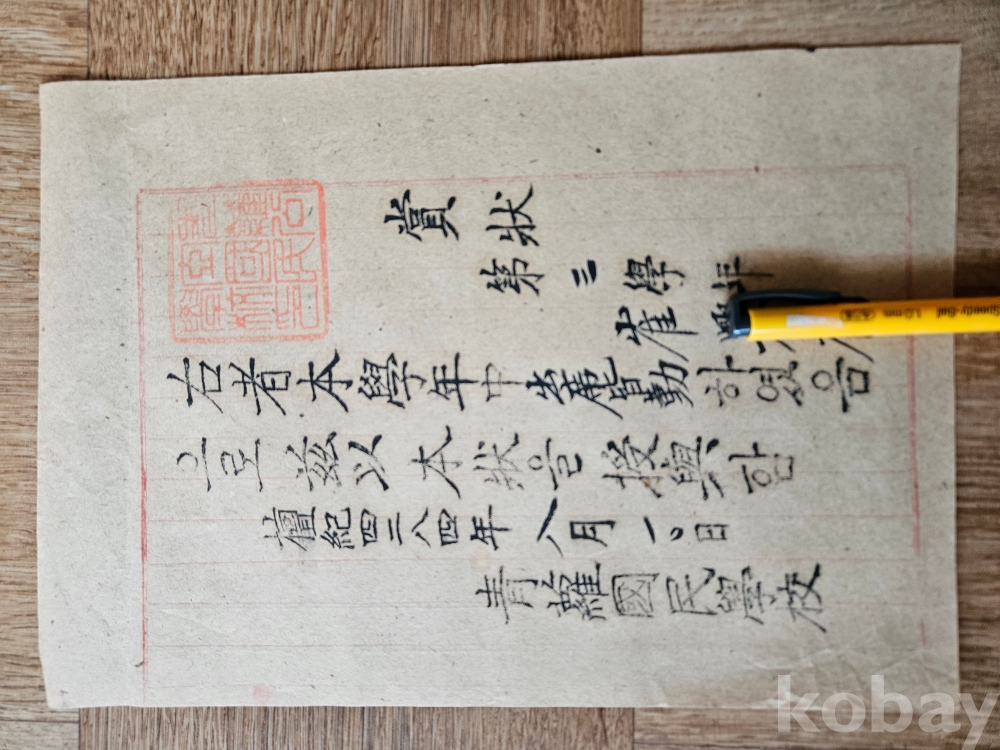 賞狀
第三學年
崔
右者本學年中 勤하였음
으로 玆以本狀을 授與함
檀紀四二八四年 八月 日
青蘿國民學校
1.0mm
kobay